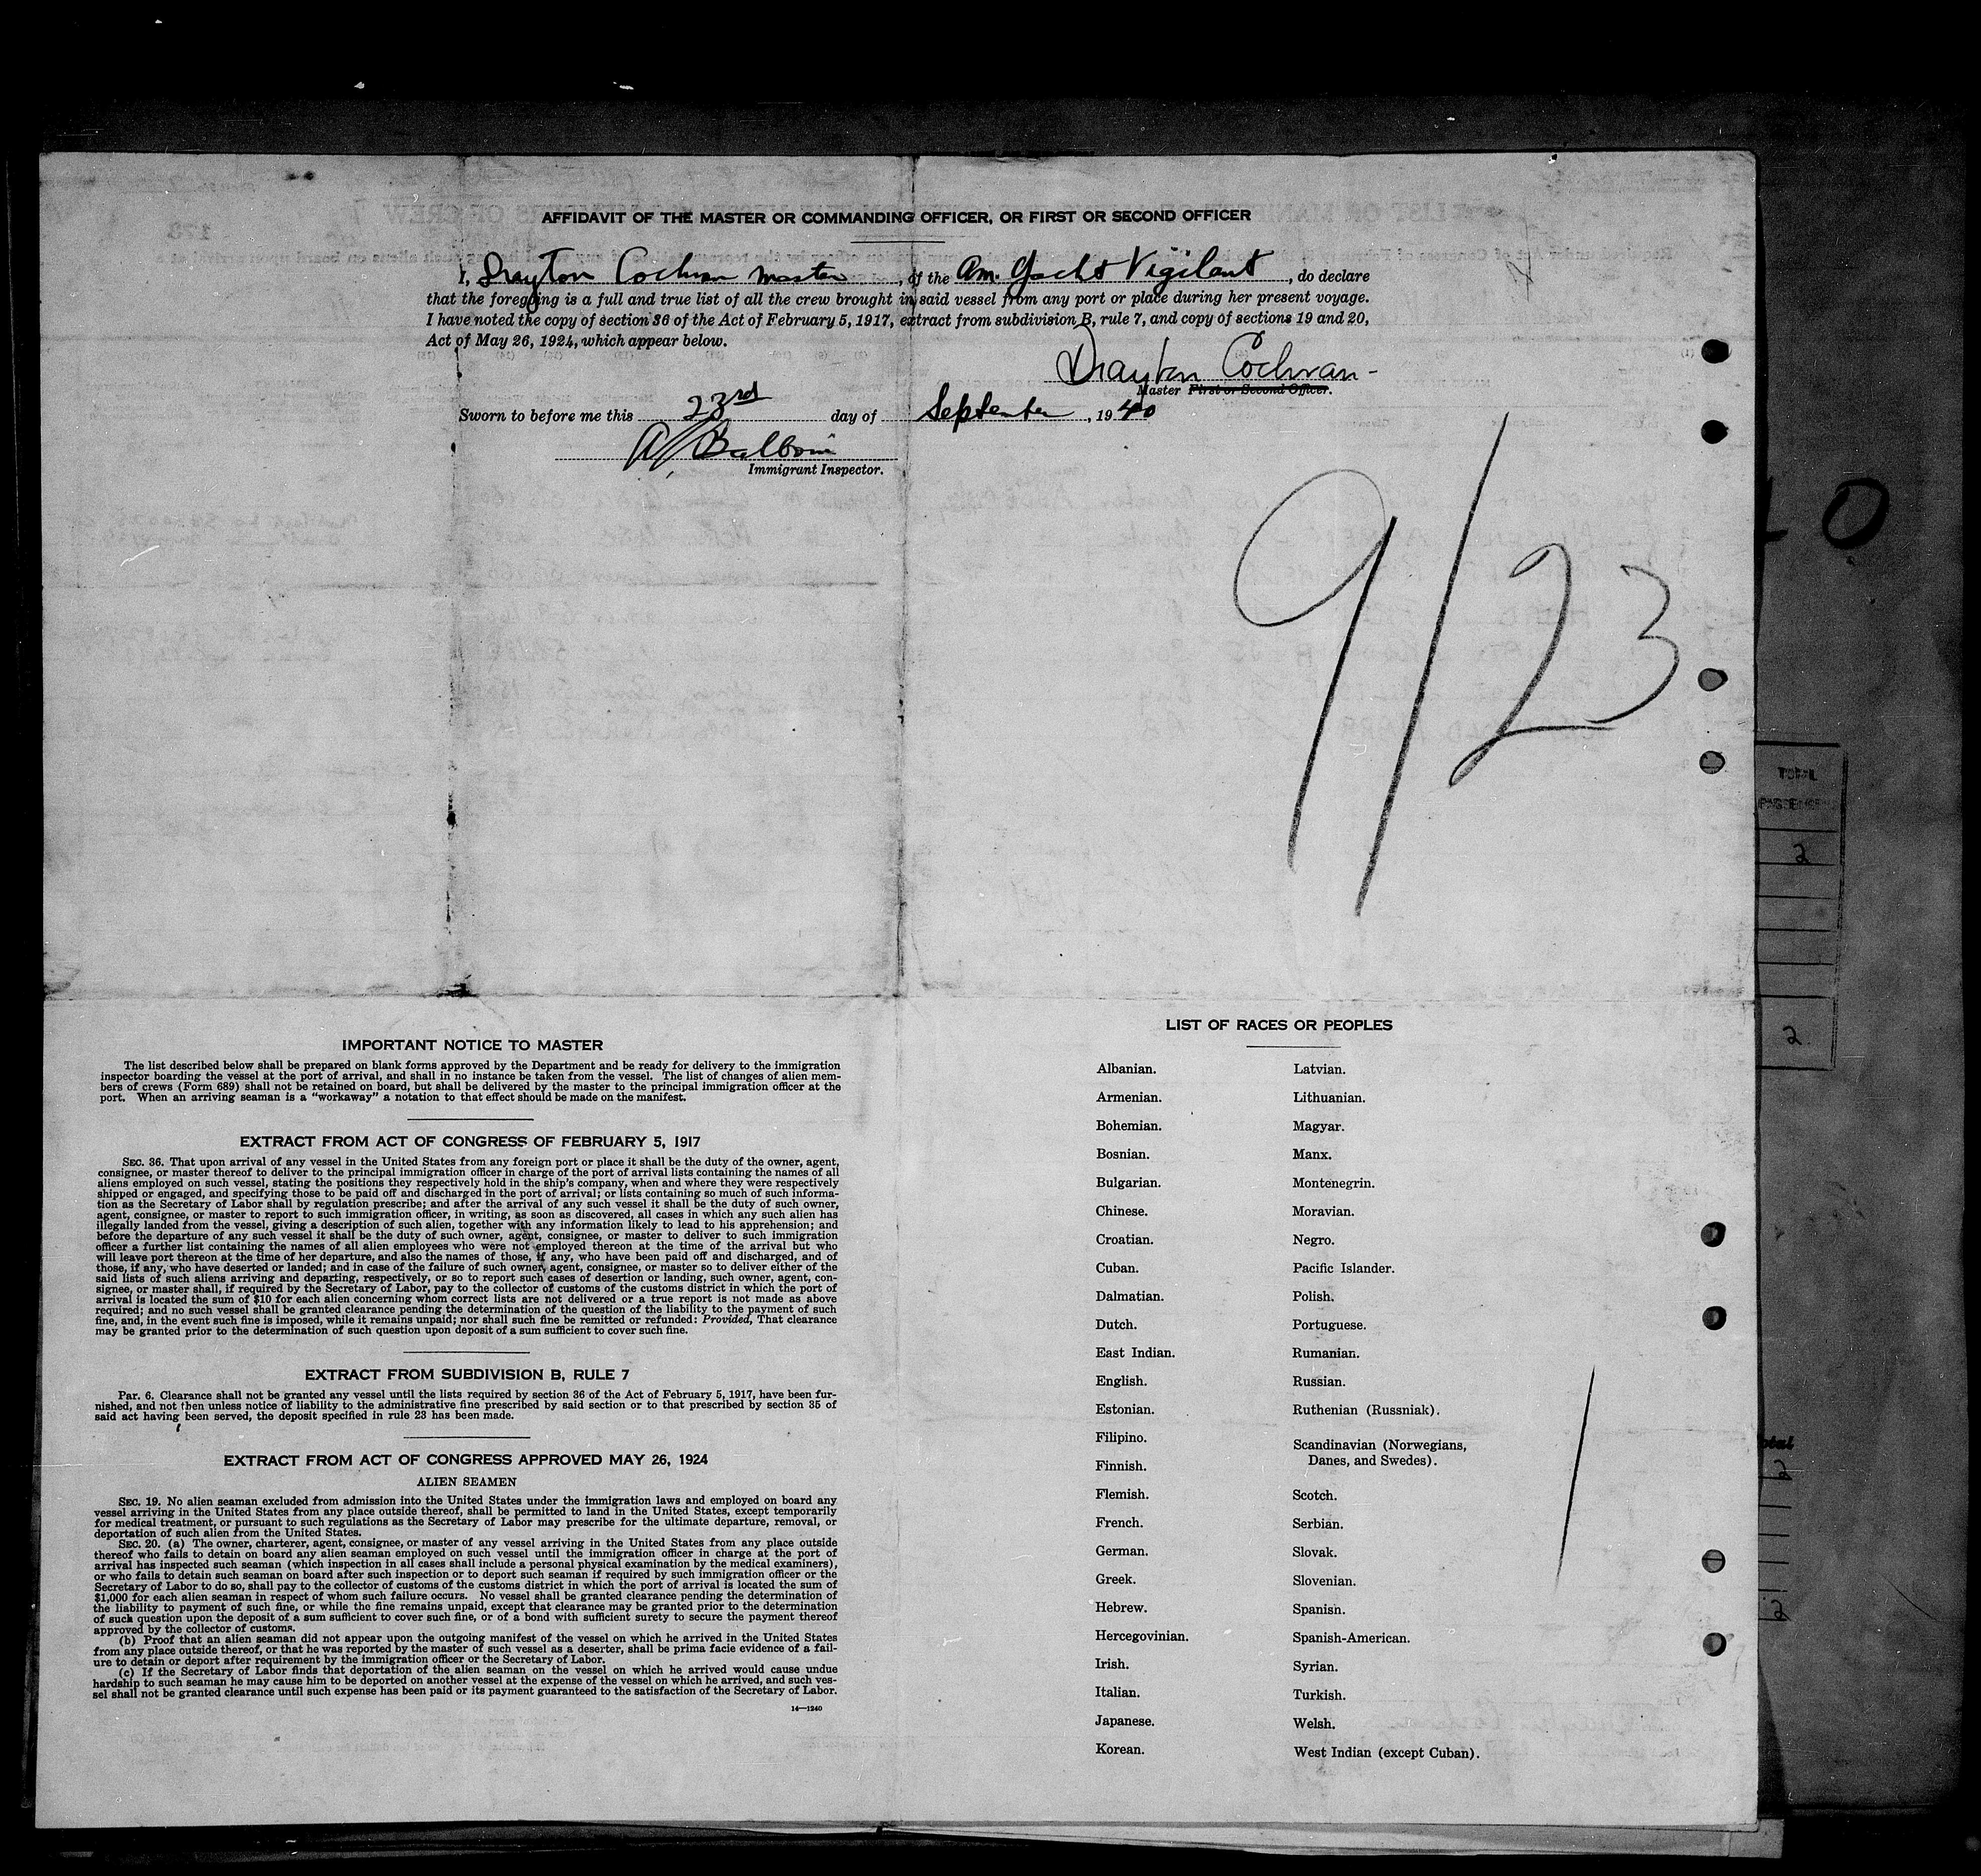 AFFIDAVIT OF THE MASTER OR COMMANDING OFFICER, OR FIRST OR SECOND OFFICER
I, Drayton Cochran master, of the Am. Yacht Vigilant, do declare
that the foregoing is a full and true list of all the crew brought in said vessel from any port or place during her present voyage.
I have noted the copy of section 36 of the Act of February 5, 1917, extract from subdivision B, rule 7, and copy of sections 19 and 20,
Act of May 26, 1924, which appear below.
Drayton Cochran
Master First or Second Officer.
Sworn to before me this 23rd day of September, 1940
Immigrant Inspector.
9/23
IMPORTANT NOTICE TO MASTER
The list described below shall be prepared on blank forms approved by the Department and be ready for delivery to the immigration
inspector boarding the vessel at the port of arrival, and shall in no instance be taken from the vessel. The list of changes of alien mem-
bers of crews (Form 689) shall not be retained on board, but shall be delivered by the master to the principal immigration officer at the
port. When an arriving seaman is a "workaway" a notation to that effect should be made on the manifest.
EXTRACT FROM ACT OF CONGRESS OF FEBRUARY 5, 1917
SEC. 36. That upon arrival of any vessel in the United States from any foreign port or place it shall be the duty of the owner, agent,
consignee, or master thereof to deliver to the principal immigration officer in charge of the port of arrival lists containing the names of all
aliens employed on such vessel, stating the positions they respectively hold in the ship's company, when and where they were respectively
shipped or engaged, and specifying those to be paid off and discharged in the port of arrival; or lists containing so much of such informa-
tion as the Secretary of Labor shall by regulation prescribe; and after the arrival of any such vessel it shall be the duty of such owner,
agent, consignee, or master to report to such immigration officer, in writing, as soon as discovered, all cases in which any such alien has
illegally landed from the vessel, giving a description of such alien, together with any information likely to lead to his apprehension; and
before the departure of any such vessel it shall be the duty of such owner, agent, consignee, or master to deliver to such immigration
officer a further list containing the names of all alien employees who were not employed thereon at the time of the arrival but who
will leave port thereon at the time of her departure, and also the names of those, if any, who have been paid off and discharged, and of
those, if any, who have deserted or landed; and in case of the failure of such owner, agent, consignee, or master so to deliver either of the
said lists of such aliens arriving and departing, respectively, or so to report such cases of desertion or landing, such owner, agent, con-
signee, or master shall, if required by the Secretary of Labor, pay to the collector of customs of the customs district in which the port of
arrival is located the sum of $10 for each alien concerning whom correct lists are not delivered or a true report is not made as above
required; and no such vessel shall be granted clearance pending the determination of the question of the liability to the payment of such
fine, and, in the event such fine is imposed, while it remains unpaid; nor shall such fine be remitted or refunded: Provided, That clearance
may be granted prior to the determination of such question upon deposit of a sum sufficient to cover such fine.
EXTRACT FROM SUBDIVISION B, RULE 7
Par. 6. Clearance shall not be granted any vessel until the lists required by section 36 of the Act of February 5, 1917, have been fur-
nished, and not then unless notice of liability to the administrative fine prescribed by said section or to that prescribed by section 35 of
said act having been served, the deposit specified in rule 23 has been made.
EXTRACT FROM ACT OF CONGRESS APPROVED MAY 26, 1924
ALIEN SEAMEN
SEC. 19. No alien seaman excluded from admission into the United States under the immigration laws and employed on board any
vessel arriving in the United States from any place outside thereof, shall be permitted to land in the United States, except temporarily
for medical treatment, or pursuant to such regulations as the Secretary of Labor may prescribe for the ultimate departure, removal, or
deportation of such alien from the United States.
SEC. 20. (a) The owner, charterer, agent, consignee, or master of any vessel arriving in the United States from any place outside
thereof who fails to detain on board any alien seaman employed on such vessel until the immigration officer in charge at the port of
arrival has inspected such seaman (which inspection in all cases shall include a personal physical examination by the medical examiners),
or who fails to detain such seaman on board after such inspection or to deport such seaman if required by such immigration officer or the
Secretary of Labor to do so, shall pay to the collector of customs of the customs district in which the port of arrival is located the sum of
$1,000 for each alien seaman in respect of whom such failure occurs. No vessel shall be granted clearance pending the determination of
the liability to payment of such fine, or while the fine remains unpaid, except that clearance may be granted prior to the determination
of such question upon the deposit of a sum sufficient to cover such fine, or of a bond with sufficient surety to secure the payment thereof
approved by the collector of customs.
(b) Proof that an alien seaman did not appear upon the outgoing manifest of the vessel on which he arrived in the United States
from any place outside thereof, or that he was reported by the master of such vessel as a deserter, shall be prima facie evidence of a fail-
ure to detain or deport after requirement by the immigration officer or the Secretary of Labor.
(c) If the Secretary of Labor finds that deportation of the alien seaman on the vessel on which he arrived would cause undue
hardship to such seaman he may cause him to be deported on another vessel at the expense of the vessel on which he arrived, and such ves-
sel shall not be granted clearance until such expense has been paid or its payment guaranteed to the satisfaction of the Secretary of Labor.
14—1240
LIST OF RACES OR PEOPLES
Albanian.
Armenian.
Bohemian.
Bosnian.
Bulgarian.
Chinese.
Croatian.
Cuban.
Dalmatian.
Dutch.
East Indian.
English.
Estonian.
Filipino.
Finnish.
Flemish.
French.
German.
Greek.
Hebrew.
Hercegovinian.
Irish.
Italian.
Japanese.
Korean.
Latvian.
Lithuanian.
Magyar.
Manx.
Montenegrin.
Moravian.
Negro.
Pacific Islander.
Polish.
Portuguese.
Rumanian.
Russian.
Ruthenian (Russniak).
Scandinavian (Norwegians,
Danes, and Swedes).
Scotch.
Serbian.
Slovak.
Slovenian.
Spanish.
Spanish-American.
Syrian.
Turkish.
Welsh.
West Indian (except Cuban).
TOTAL
2
2
2
2